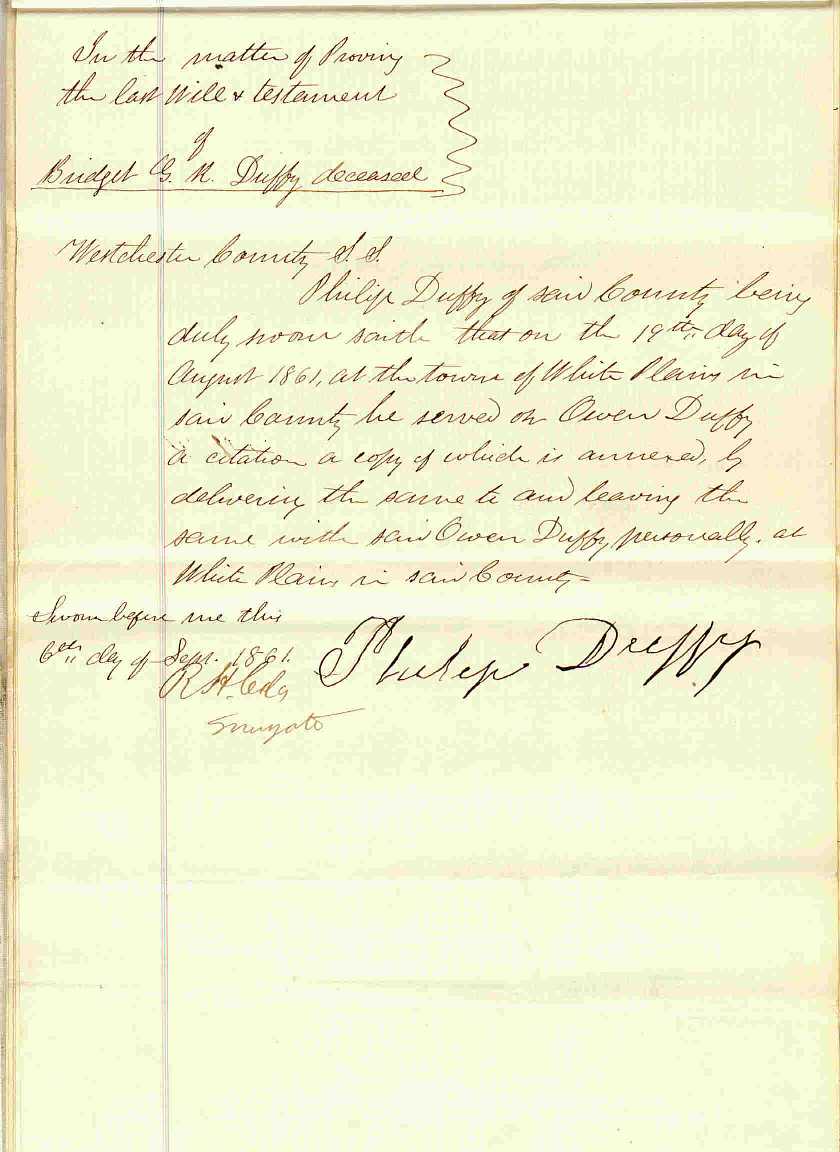 In the matter of Proving
the last Will & testament
of
Bridget G. K. Duffy deceased
Westchester County S.S.
Philip Duffy of said County being
duly sworn saith that on the 19th day of
August 1861, at the town of White Plains in
said County he served on Owen Duffy
a citation a copy of which is annexed, by
delivering the same to and leaving the
same with said Owen Duffy personally. at
White Plains in said County-
Sworn before me this
6th day of Sept. 1861.
Philip Duffy
R H
Surrogate